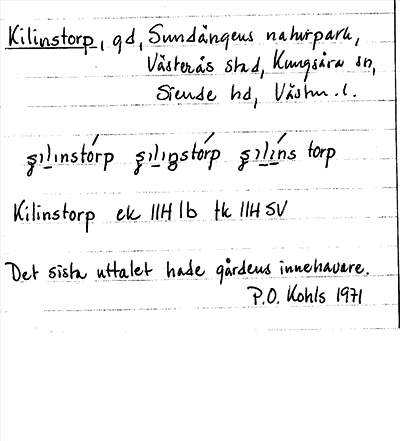 Kilinstorp, gd, Sundängens naturpark,
Västerås stad, Kungsåra sn,
Siende hd, Västm. l.
Kilinstorp ek 11H 1b tk 11H SV
Det sista uttalet hade gårdens innehavare.
P.O. Kohls 1971